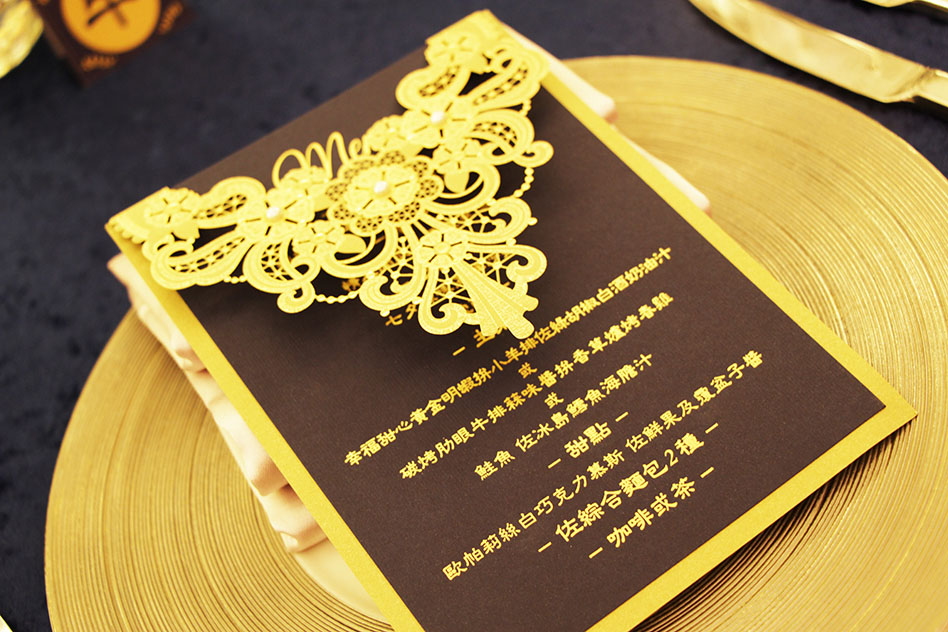 Me
七夕
幸福甜心黃金明蝦拼小羊排佐綠胡椒白酒奶油汁
或
碳烤肋眼牛排蒜味醬拼香草爐烤春雞
或
鮭魚 佐冰島鱈魚海膽汁
– 甜點 –
歐帕莉絲白巧克力慕斯 佐鮮果及覆盆子醬
– 佐綜合麵包2種 –
– 咖啡或茶 –